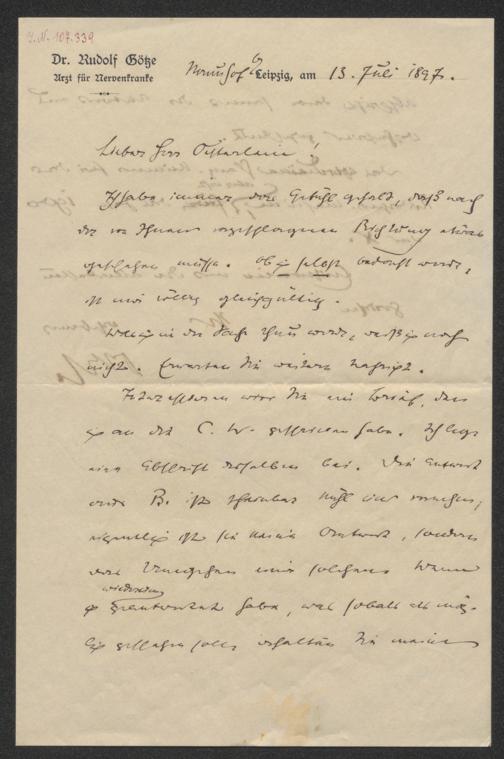 I.N. 107.339
Dr. Rudolf Götze
Arzt für Nervenkranke
Naunhof b/Leipzig, am 13. Juli 1897.
Lieber Herr !
Ich habe immer das Gefühl gehabt, daß nach
der von Ihnen vorgeschlagenen Richtung etwas
geschehen müsse. Ob ich selbst bedacht werde,
ist mir völlig gleichgültig.
Was ich in der Sache thun werde, weiß ich noch
nicht. Erwarten Sie weitere Nachricht.
Interessieren wird Sie ein Brief, den
ich an die C. W. geschrieben habe. Ich lege
eine Abschrift desselben bei. Die Antwort
von B. ist scheinbar kühl und ;
eigentlich ist sie keine Antwort, sondern
das eines solchen. Wenn
wiederum
ich geantwortet habe, was sobald als mög-
lich geschehen soll, erhalten Sie meine